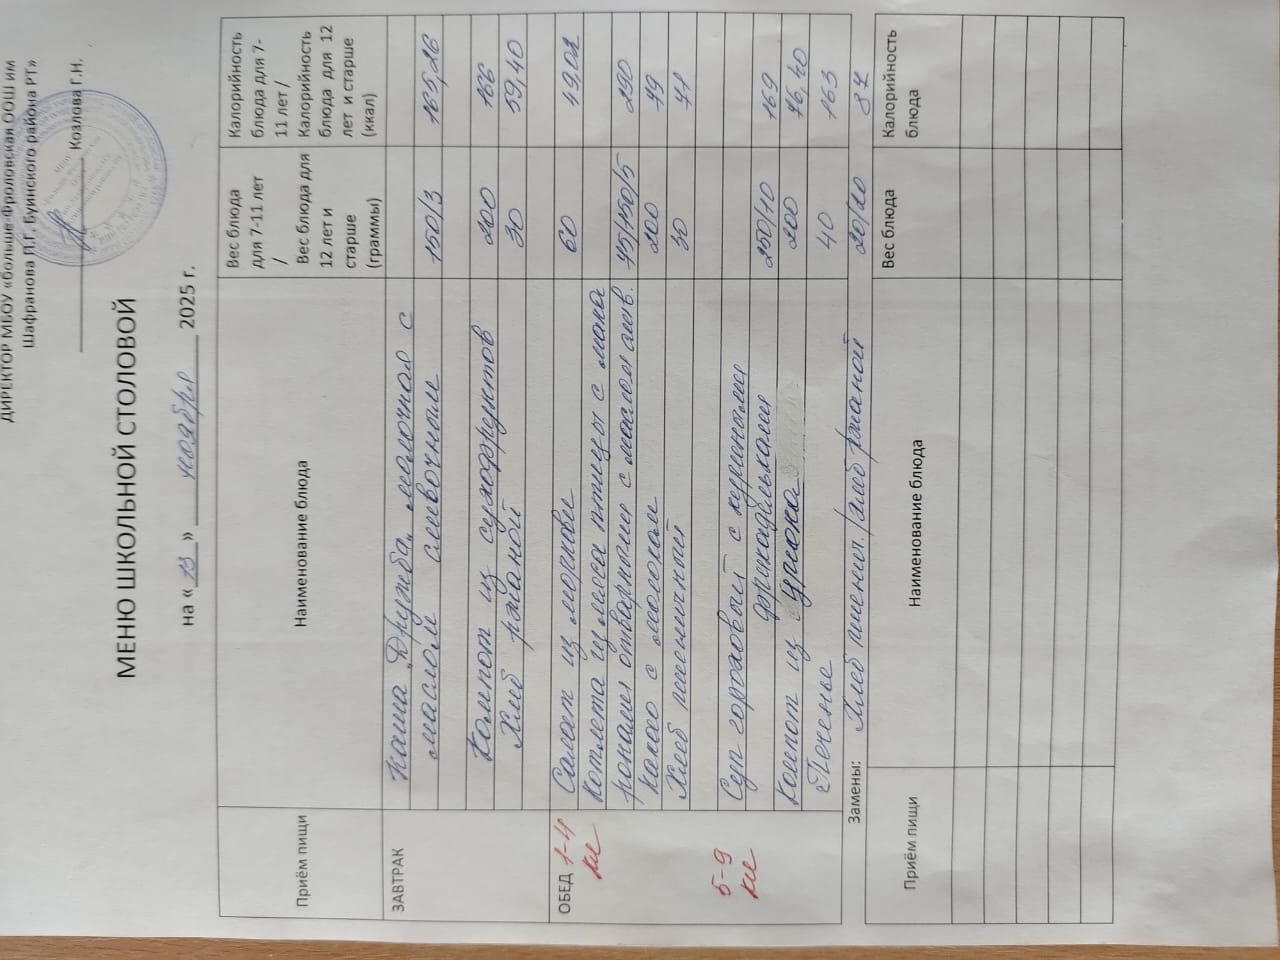 ДИРЕКТОР МБОУ «Больше-Фроловская ООШ им
Шафранова П.Г. Буинского района РТ»
Козлова Г.Н.
МЕНЮ ШКОЛЬНОЙ СТОЛОВОЙ
на « 13 » ноября 2025 г.
Приём пищи | Наименование блюда | Вес блюда для 7-11 лет / Вес блюда для 12 лет и старше (граммы) | Калорийность блюда для 7-11 лет / Калорийность блюда для 12 лет и старше (ккал)
ЗАВТРАК | Каша „Дружба" молочная с
маслом сливочным | 150/3 | 165,26
Компот из сухофруктов | 200 | 166
Хлеб ржаной | 30 | 59,40
ОБЕД 1-4 кл | Салат из моркови | 60 | 49,02
Котлета из мяса птицы с мака
ронами отварными с маслом слив. | 75/150/5 | 290
Какао с молоком | 200 | 79
Хлеб пшеничный | 30 | 71
5-9 кл | Суп гороховый с куриными
фрикадельками | 250/10 | 169
Компот из урюка | 200 | 76,40
Печенье | 40 | 163
Замены: Хлеб пшенич./хлеб ржаной 20/20 87
Приём пищи | Наименование блюда | Вес блюда | Калорийность блюда